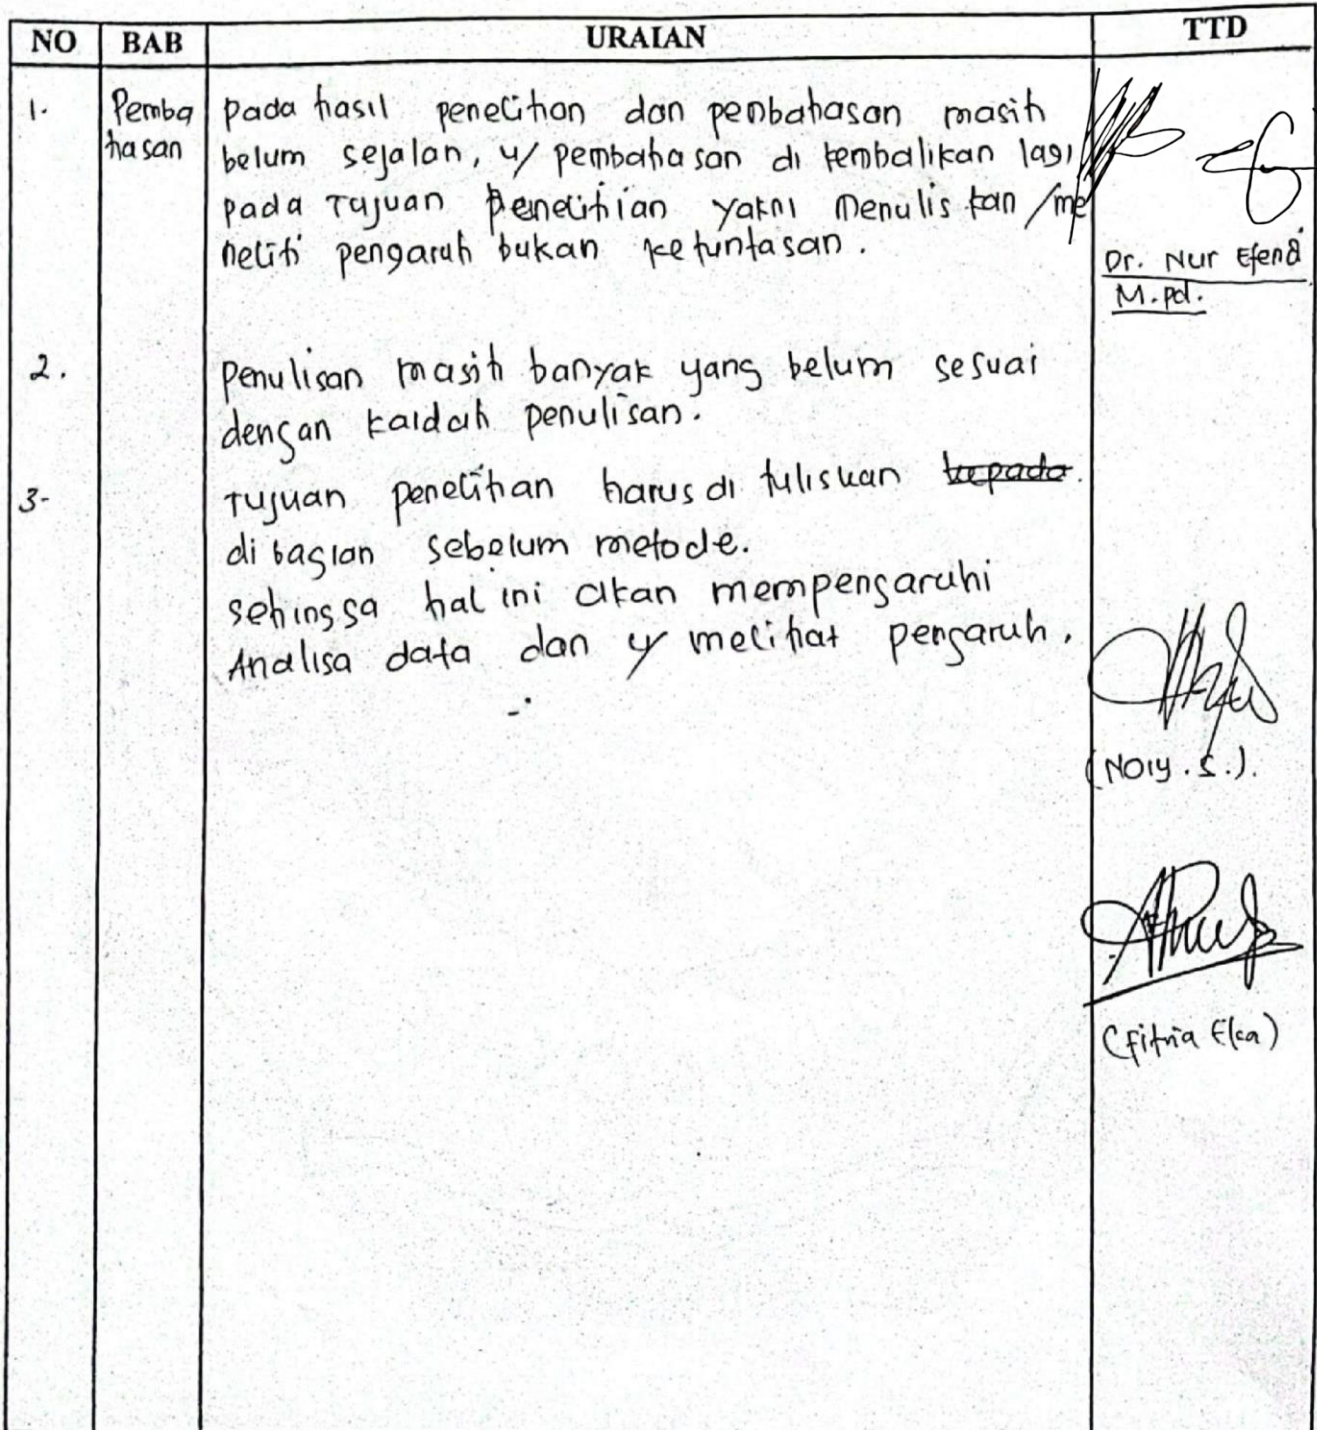 NO BAB URAIAN TTD
1. Pemba pada hasil penelitian dan pembahasan masih
hasan belum sejalan, u/ pembahasan di kembalikan lagi
pada Tujuan Penelitian yakni Menulis kan /me
neliti pengaruh bukan ketuntasan.
Dr. Nur Efendi
M.pd.
2. Penulisan masih banyak yang belum sesuai
dengan kaidah penulisan.
3- Tujuan penelitian harus di tuliskan kepada.
di bagian sebelum metode.
sehingga hal ini akan mempengaruhi
Analisa data dan u/ melihat pengaruh.
(Noly. S.).
(Fitria Elca)